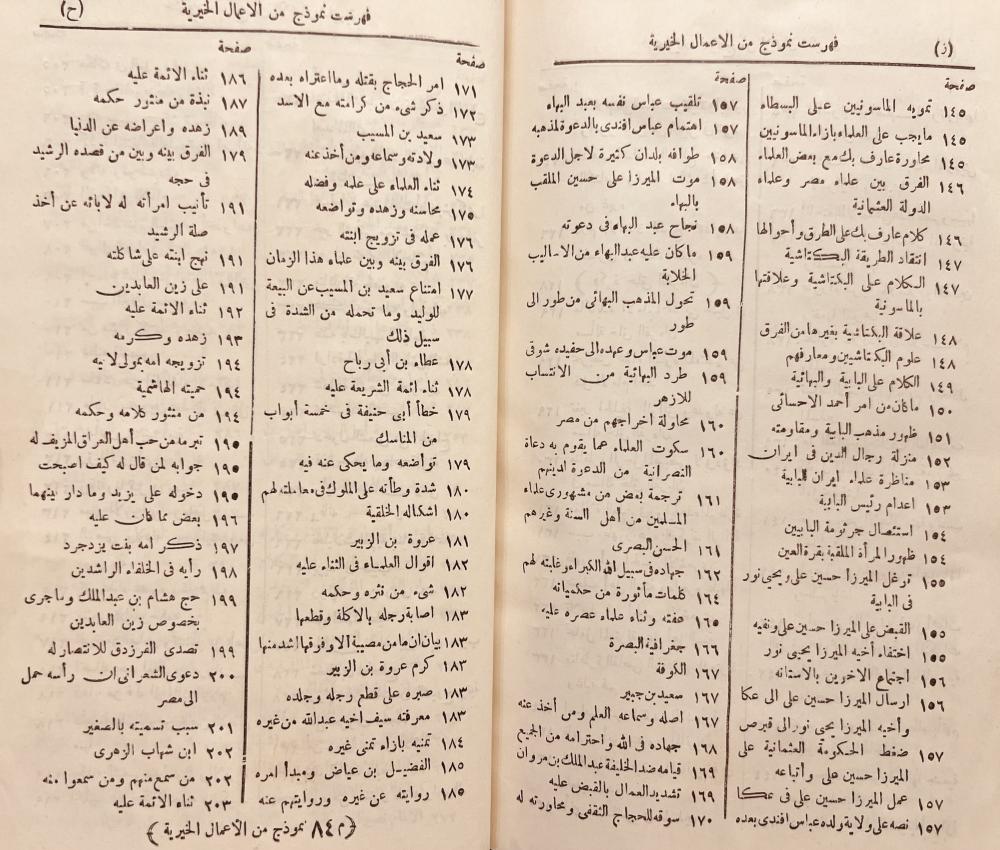 (ز) فهرست نموذج من الاعمال الخيرية
صحيفة
١٤٥ تمويه الماسونيين على البسطاء
١٤٥ مايجب على العلماء بازاء الماسونيين
١٤٥ محاورة عارف بك مع بعض العلماء
١٤٦ الفرق بين علماء مصر وعلماء
الدولة العثمانية
١٤٦ كلام عارف بك على الطرق وأحوالها
١٤٧ انتقاد الطريقة البكتاشية
١٤٧ الكلام على البكتاشية وعلاقتها
بالماسونية
١٤٨ علاقة البكتاشية بغيرها من الفرق
١٤٨ علوم البكتاشيين ومعارفهم
١٤٩ الكلام على البابية والبهائية
١٥٠ ماكان من امر أحمد الاحسائى
١٥١ ظهور مذهب البابية ومقاومته
١٥٢ منزلة رجال الدين فى ايران
١٥٣ مناظرة علماء ايران للبابية
١٥٣ اعدام رئيس البابية
١٥٤ استئصال جرثومة البابيين
١٥٤ ظهور المرأة الملقبة بقرة العين
١٥٥ توغل الميرزا حسين على ويحيى نور
فى البابية
١٥٥ القبض على الميرزا حسين على ونفيه
١٥٥ اختفاء أخيه الميرزا يحيى نور
١٥٦ اجتماع الاخوين بالاستانه
١٥٦ ارسال الميرزا حسين على الى عكا
وأخيه الميرزا يحيى نور الى قبرص
١٥٧ ضغط الحكومة العثمانية على
الميرزا حسين على وأتباعه
١٥٧ عمل الميرزا حسين على فى عكا
١٥٧ نصه على ولاية ولده عباس افندى بعده
صحيفة
١٥٧ تلقيب عباس نفسه بعبد البهاء
١٥٧ اهتمام عباس افندى بالدعوة لمذهبه
١٥٨ طوافه بلدان كثيرة لاجل الدعوة
١٥٨ موت الميرزا على حسين الملقب
بالبهاء
١٥٨ نجاح عبد البهاء فى دعوته
١٥٩ ماكان عليه عبد البهاء من الاساليب
الخلابة
١٥٩ تحول المذهب البهائى من طور الى
طور
١٥٩ موت عباس وعهده الى حفيده شوقى
١٥٩ طرد البهائية من الانتساب
للازهر
١٦٠ محاولة اخراجهم من مصر
١٦٠ سكوت العلماء عما يقوم به دعاة
النصرانية من الدعوة لدينهم
١٦١ ترجمة بعض من مشهورى علماء
المسلمين من أهل السنة وغيرهم
١٦١ الحسن البصرى
١٦٢ جهاده فى سبيل الله الكبراء وغايته لهم
١٦٤ كلمات مأثورة من حكمياته
١٦٥ عفته وثناء علماء عصره عليه
١٦٦ جغرافية البصرة
١٦٧ الكوفة
١٦٧ سعيد بن جبير
١٦٧ اصله وسماعه العلم ومن أخذ عنه
١٦٨ جهاده فى الله واحترامه من الجميع
١٦٩ قيامه ضد الخليفة عبد الملك بن مروان
١٦٩ تشديد العمال بالقبض عليه
١٧٠ سوقه للحجاج الثقفى ومحاورته له
فهرست نموذج من الاعمال الخيرية (ح)
صفحة
١٧١ امر الحجاج بقتله وما اعتراه بعده
١٧٢ ذكر شىء من كرامته مع الاسد
١٧٣ سعيد بن المسيب
١٧٣ ولادته وسماعه ومن أخذ عنه
١٧٤ ثناء العلماء على علمه وفضله
١٧٥ محاسنه وزهده وتواضعه
١٧٦ عمله فى تزويج ابنته
١٧٦ الفرق بينه وبين علماء هذا الزمان
١٧٧ امتناع سعيد بن المسيب عن البيعة
للوليد وما تحمله من الشدة فى
سبيل ذلك
١٧٨ عطاء بن أبى رباح
١٧٨ ثناء ائمة الشريعة عليه
١٧٩ خطأ أبى حنيفة فى خمسة أبواب
من المناسك
١٧٩ تواضعه وما يحكى عنه فيه
١٨٠ شدة وطأته على الملوك فى معاملته لهم
١٨٠ اشكاله الخلقية
١٨١ عروة بن الزبير
١٨٢ اقوال العلماء فى الثناء عليه
١٨٢ شىء من نثره وحكمه
١٨٣ اصابة رجله بالاكلة وقطعها
١٨٣ بيان ان مامن مصيبة الا وفوقها اشد منها
١٨٣ كرم عروة بن الزبير
١٨٣ صبره على قطع رجله وجلده
١٨٣ معرفته سيف اخيه عبدالله من غيره
١٨٤ تمنيه بازاء تمنى غيره
١٨٥ الفضيل بن عياض ومبدأ امره
١٨٥ روايته عن غيره وروايتهم عنه
صفحة
١٨٦ ثناء الائمة عليه
١٨٧ نبذة من منثور حكمه
١٨٩ زهده واعراضه عن الدنيا
١٧٩ الفرق بينه وبين من قصده الرشيد
فى حجه
١٩١ تأنيب امرأته له لابائه عن أخذ
صلة الرشيد
١٩١ نهج ابنته على شاكلته
١٩١ على زين العابدين
١٩٢ ثناء الائمة عليه
١٩٣ زهده وكرمه
١٩٤ تزويجه امه بمولى لابيه
١٩٤ حميته الهاشمية
١٩٤ من منثور كلامه وحكمه
١٩٥ تبرمه من حب أهل العراق المزيف له
١٩٥ جوابه لمن قال له كيف اصبحت
١٩٥ دخوله على يزيد وما دار بينهما
١٩٦ بعض مما كان عليه
١٩٧ ذكر امه بنت يزدجرد
١٩٨ رأيه فى الخلفاء الراشدين
١٩٩ حج هشام بن عبد الملك وماجرى
بخصوص زين العابدين
١٩٩ تصدى الفرزدق للانتصار له
٢٠٠ دعوى الشعرانى ان رأسه حمل
الى مصر
٢٠١ سبب تسميته بالصغير
٢٠٢ ابن شهاب الزهرى
٢٠٢ من سمع منهم ومن سمعوا منه
٢٠٣ ثناء الائمة عليه
(م ٨٤ نموذج من الاعمال الخيرية)